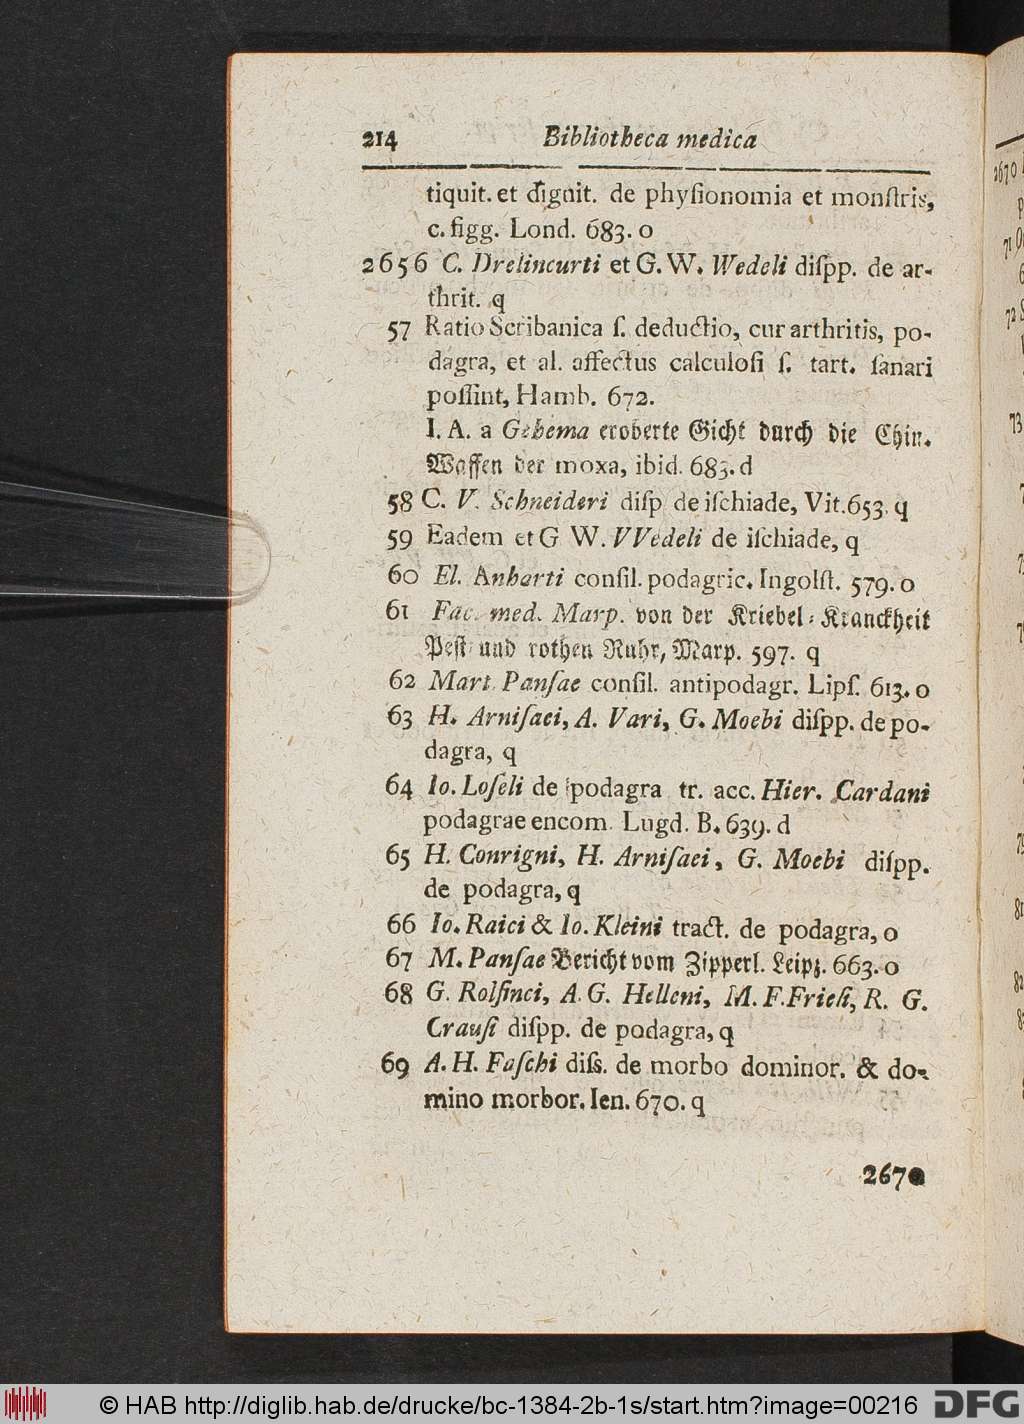 214 Bibliotheca medica
tiquit. et dignit. de physionomia et monſtris,
c. figg. Lond. 683. o
2656 C. Drelincurti et G. W. Wedeli diſpp. de ar-
thrit. q
57 Ratio Scribanica ſ. deductio, cur arthritis, po-
dagra, et al. affectus calculoſi ſ. tart. ſanari
poſſint, Hamb. 672.
I. A. a Gehema eroberte Gicht durch die Chin.
Waffen der moxa, ibid. 683. d
58 C. V. Schneideri diſp de iſchiade, Vit. 653. q
59 Eadem et G W. VVedeli de iſchiade, q
60 El. Anharti conſil. podagric. Ingolſt. 579. o
61 Fac. med. Marp. von der Kriebel-Kranckheit
Peſt und rothen Ruhr, Marp. 597. q
62 Mart. Panſae conſil. antipodagr. Lipſ. 613. o
63 H. Arniſaei, A. Vari, G. Moebi diſpp. de po-
dagra, q
64 Io. Loſeli de podagra tr. acc. Hier. Cardani
podagrae encom. Lugd. B. 639. d
65 H. Conrigni, H. Arniſaei, G. Moebi diſpp.
de podagra, q
66 Io. Raici & Io. Kleini tract. de podagra, o
67 M. Panſae Bericht vom Zipperl. Leipz. 663. o
68 G. Rolfinci, A. G. Helleni, M. F. Frieſi, R. G.
Crauſi diſpp. de podagra, q
69 A. H. Faſchi diſſ. de morbo dominor. & do-
mino morbor. Ien. 670. q
2670
© HAB http://diglib.hab.de/drucke/bc-1384-2b-1s/start.htm?image=00216
DFG